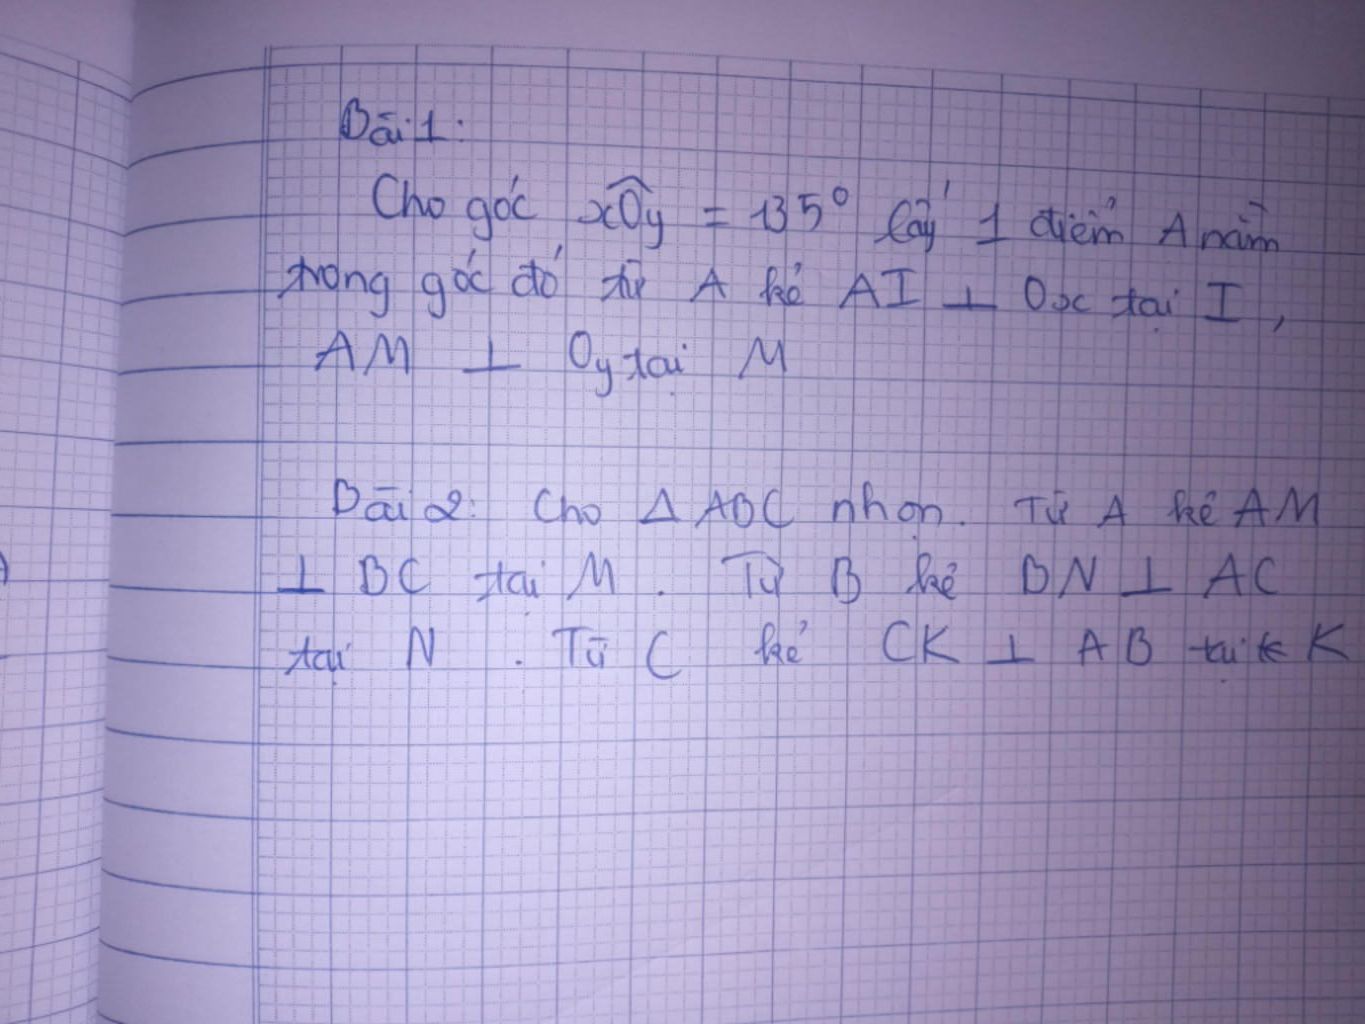 Bài 1:
Cho góc xÔy = 135° lấy 1 điểm A nằm
trong góc đó từ A kẻ AI ⊥ Ox tại I,
AM ⊥ Oy tại M
Bài 2: Cho Δ ABC nhọn. Từ A kẻ AM
⊥ BC tại M. Từ B kẻ BN ⊥ AC
tại N. Từ C kẻ CK ⊥ AB tại K